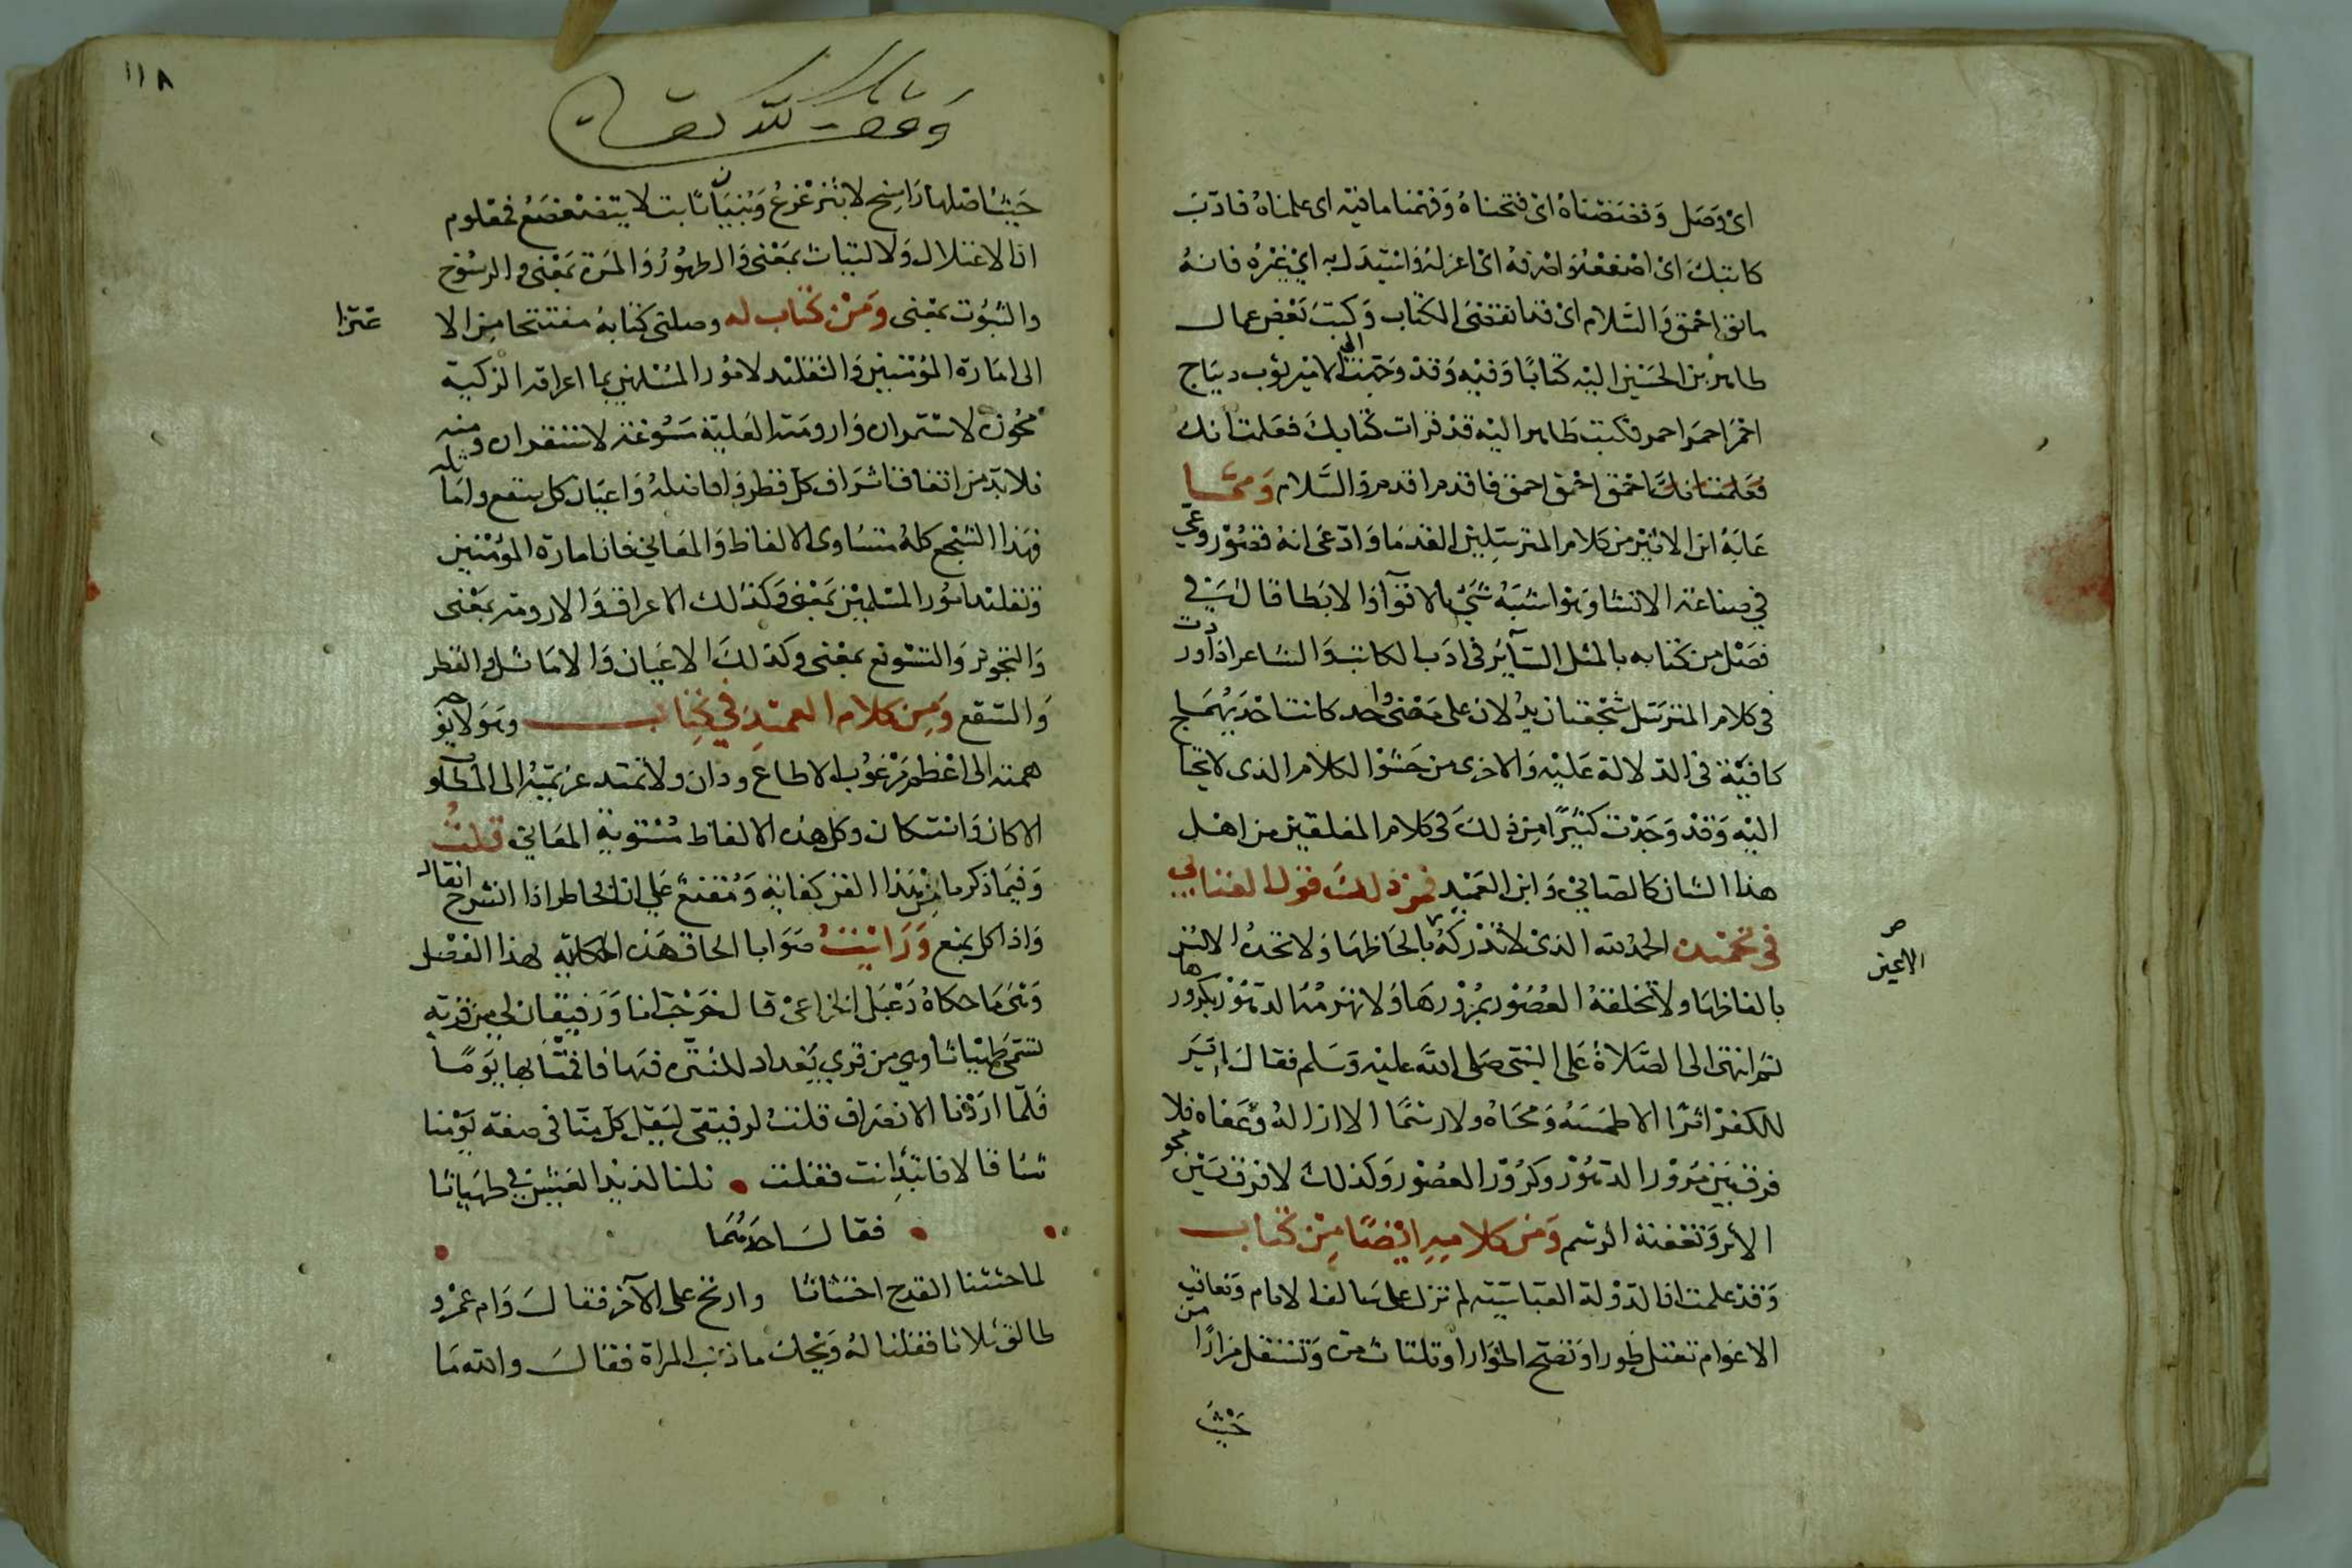 اى وصل وفضضناه اى فتحناه وفهمنا ما فيه اى علمناه فادب
كاتبك اى اصفعه واصرفه اى اعزله واستبدل به اى غيره فانه
مائق احمق والسلام اى قد انقضى الكتاب وكتب بعض عمال
طاهر بن الحسين اليه كتابا وفيه وقد وجهت الى الامير بثوب ديباج
احمر احمر احمر فكتب طاهر اليه قد قرات كتابك فعلمت انك
فعلمنا انك احمق احمق احمق فاقدم اقدم اقدم والسلام ومما
عابه ابن الاثير من كلام المترسلين القدما وادعى انه قصور وعي
في صناعة الانشا وهو اشبه شي بالاقوا والايطا قال في
فصل من كتابه بالمثل السائر فى ادب الكاتب والشاعر اذا وردت
فى كلام المترسل سجعتان يدلان على معنى واحد كانت احديهما
كافية فى الدلالة عليه والاخرى من حشو الكلام الذى لا يحتاج
اليه وقد وجدت كثيرا من ذلك فى كلام المفلقين من اهل
هذا الشان كالصابي وابن العميد فمن ذلك قول الصابي
فى تحميد الحمد لله الذى لا تدركه بالحاظها ولا تحده الالسن
الاعين
بالفاظها ولا تخلقه العصور بمرورها ولا تهرمه الدهور بكرورها
ثم انتهى الى الصلاة على النبي صلى الله عليه وسلم فقال لم ير
للكفر اثرا الا طمسه ومحاه ولا رسما الا ازاله وعفاه فلا
فرق بين مرور الدهور وكرور العصور وكذلك لا فرق بين محو
الاثر وتعفية الرسم ومن كلامه ايضا من كتاب
وقد علمت ان الدولة العباسية لم تزل على سالف الايام وتعاقب
الاعوام تعتل طورا وتصح اطوارا وتلتاث مرة وتستقل مرارا من
حيث
١١٨
وقف لله تعالى
حيث اصلها راسخ لا يتزعزع وبنيانها ثابت لا يتضعضع فمعلوم
ان الاعتلال والالتياث بمعنى والطور والمرة بمعنى والرسوخ
والثبوت بمعنى ومن كتاب له وصلنى كتابه مفتتحا من الا
عتزا
الى امارة المؤمنين والتقلد لامور المسلمين بما اعراقه الزكية
مجوزة لاستمراره وارومته العلية مسوغة لاستقراره ومنه
فلا بد من اتفاق اشراف كل قطر وافاضله واعيان كل صقع واماثله
فهذا السجع كله متساوى الالفاظ والمعاني فان امارة المؤمنين
وتقلد امور المسلمين بمعنى وكذلك الاعراق والارومة بمعنى
والتجويز والتسويغ بمعنى وكذلك الاعيان والاماثل والقطر
والصقع ومن كلام العميد في كتاب وهو لا
همته الى اعظم مرغوب الا طاع ودان ولا تمتد عزيمته الى المطلوب
الا كان واستكان وكل هذه الالفاظ مستوية المعاني قلت
وفيما ذكر من هذا الفن كفاية ومقنع على ان الخاطر اذا انشرح انقاد
واذا كل يمنع ورايت صوابا الحاق هذه الحكاية بهذا الفصل
وهى ما حكاه دعبل الخزاعى قال خرجت انا ورفيقان لى من قرية
تسمى طهياثا وهي من قرى بغداد للتنزه فيها فاقمنا بها يوما
فلما اردنا الانصراف قلت لرفيقى ليقل كل منا فى صفة يومنا
شيا قالا فابتدا انت فقلت نلنا لذيذ العيش في طهياثا
فقال احدهما
لما حثثنا القدح احتثاثا وارتج على الآخر فقال وام عمرو
طالق ثلاثا فقلنا له ويحك ما ذنب المراة فقال والله ما